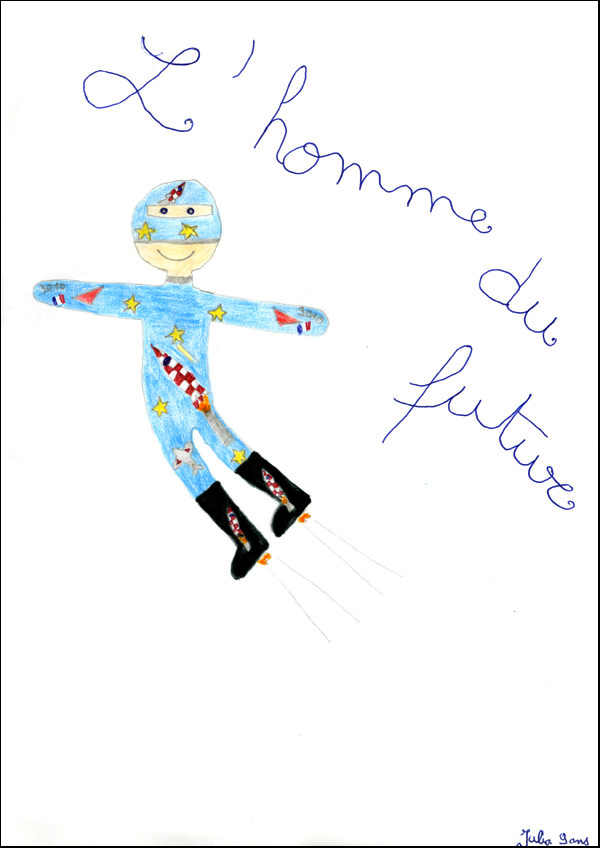 L'homme
du
future
3010
3010
Julia 9ans